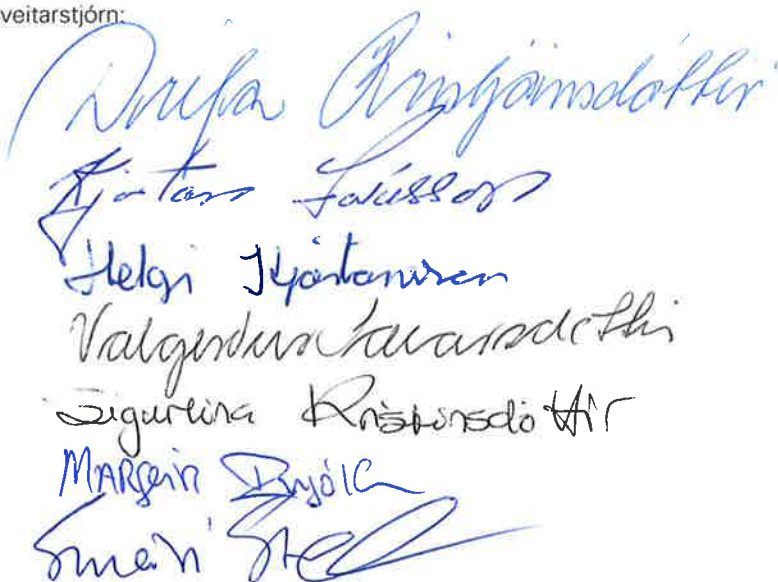 veitarstjórn:
Drífa Kristjánsdóttir
Kjartan Lárusson
Helgi Kjartansson
Valgerður Sævarsdóttir
Sigurlína Kristinsdóttir
MARGeir Ingólf
Smári Ste